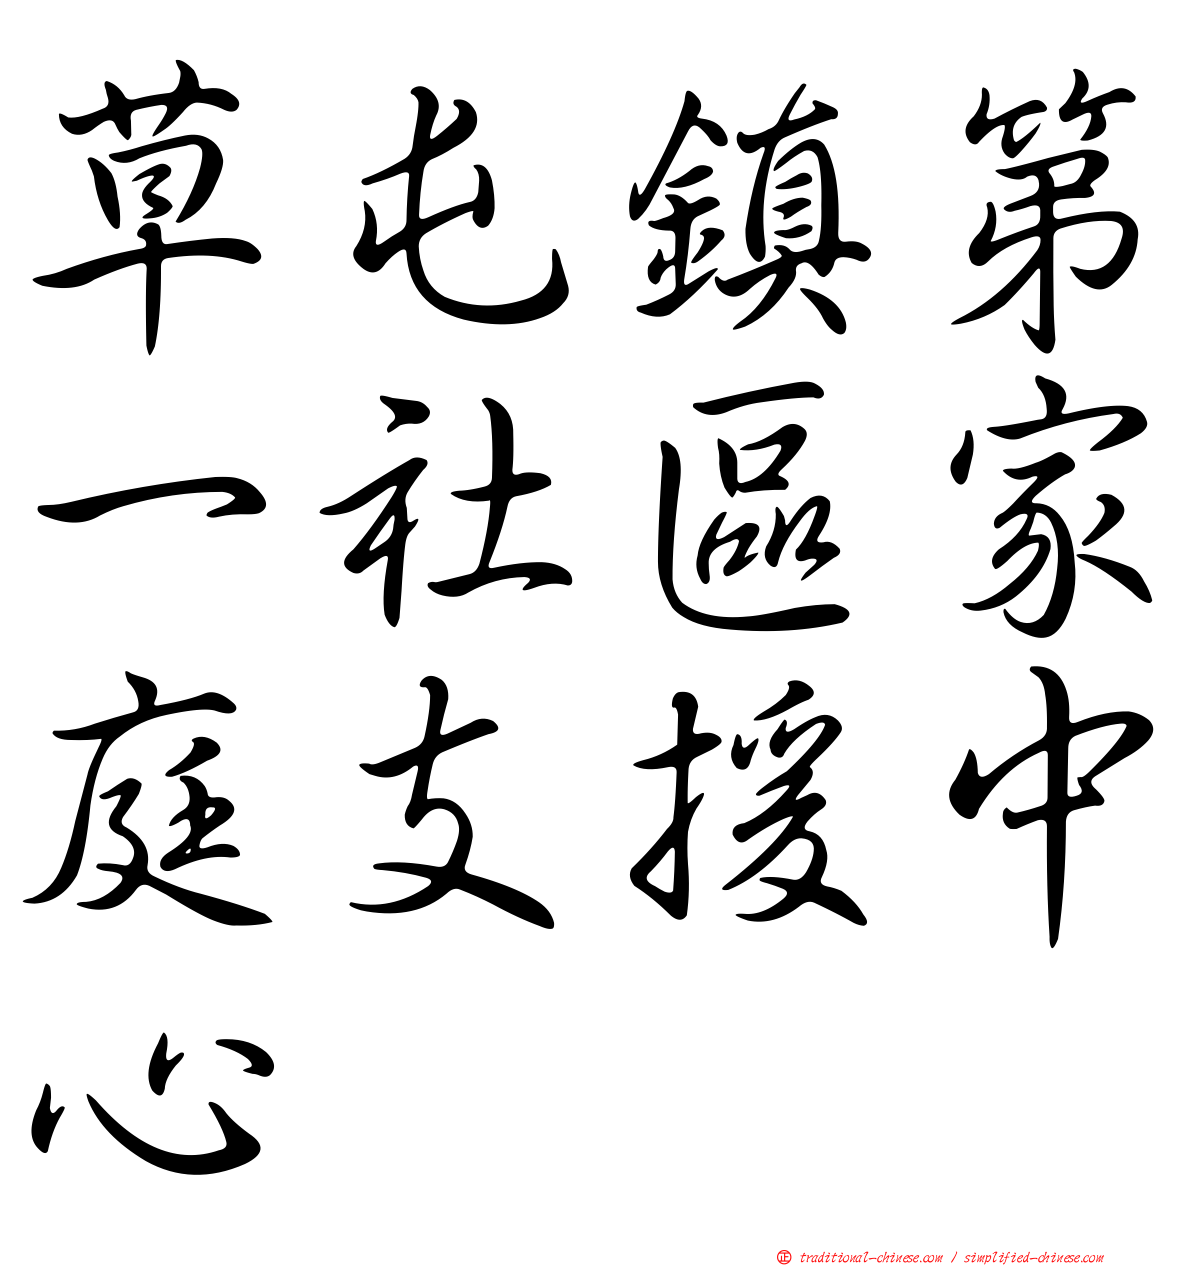 草屯鎮第
一社區家
庭支援中
心
正 traditional-chinese.com / simplified-chinese.com